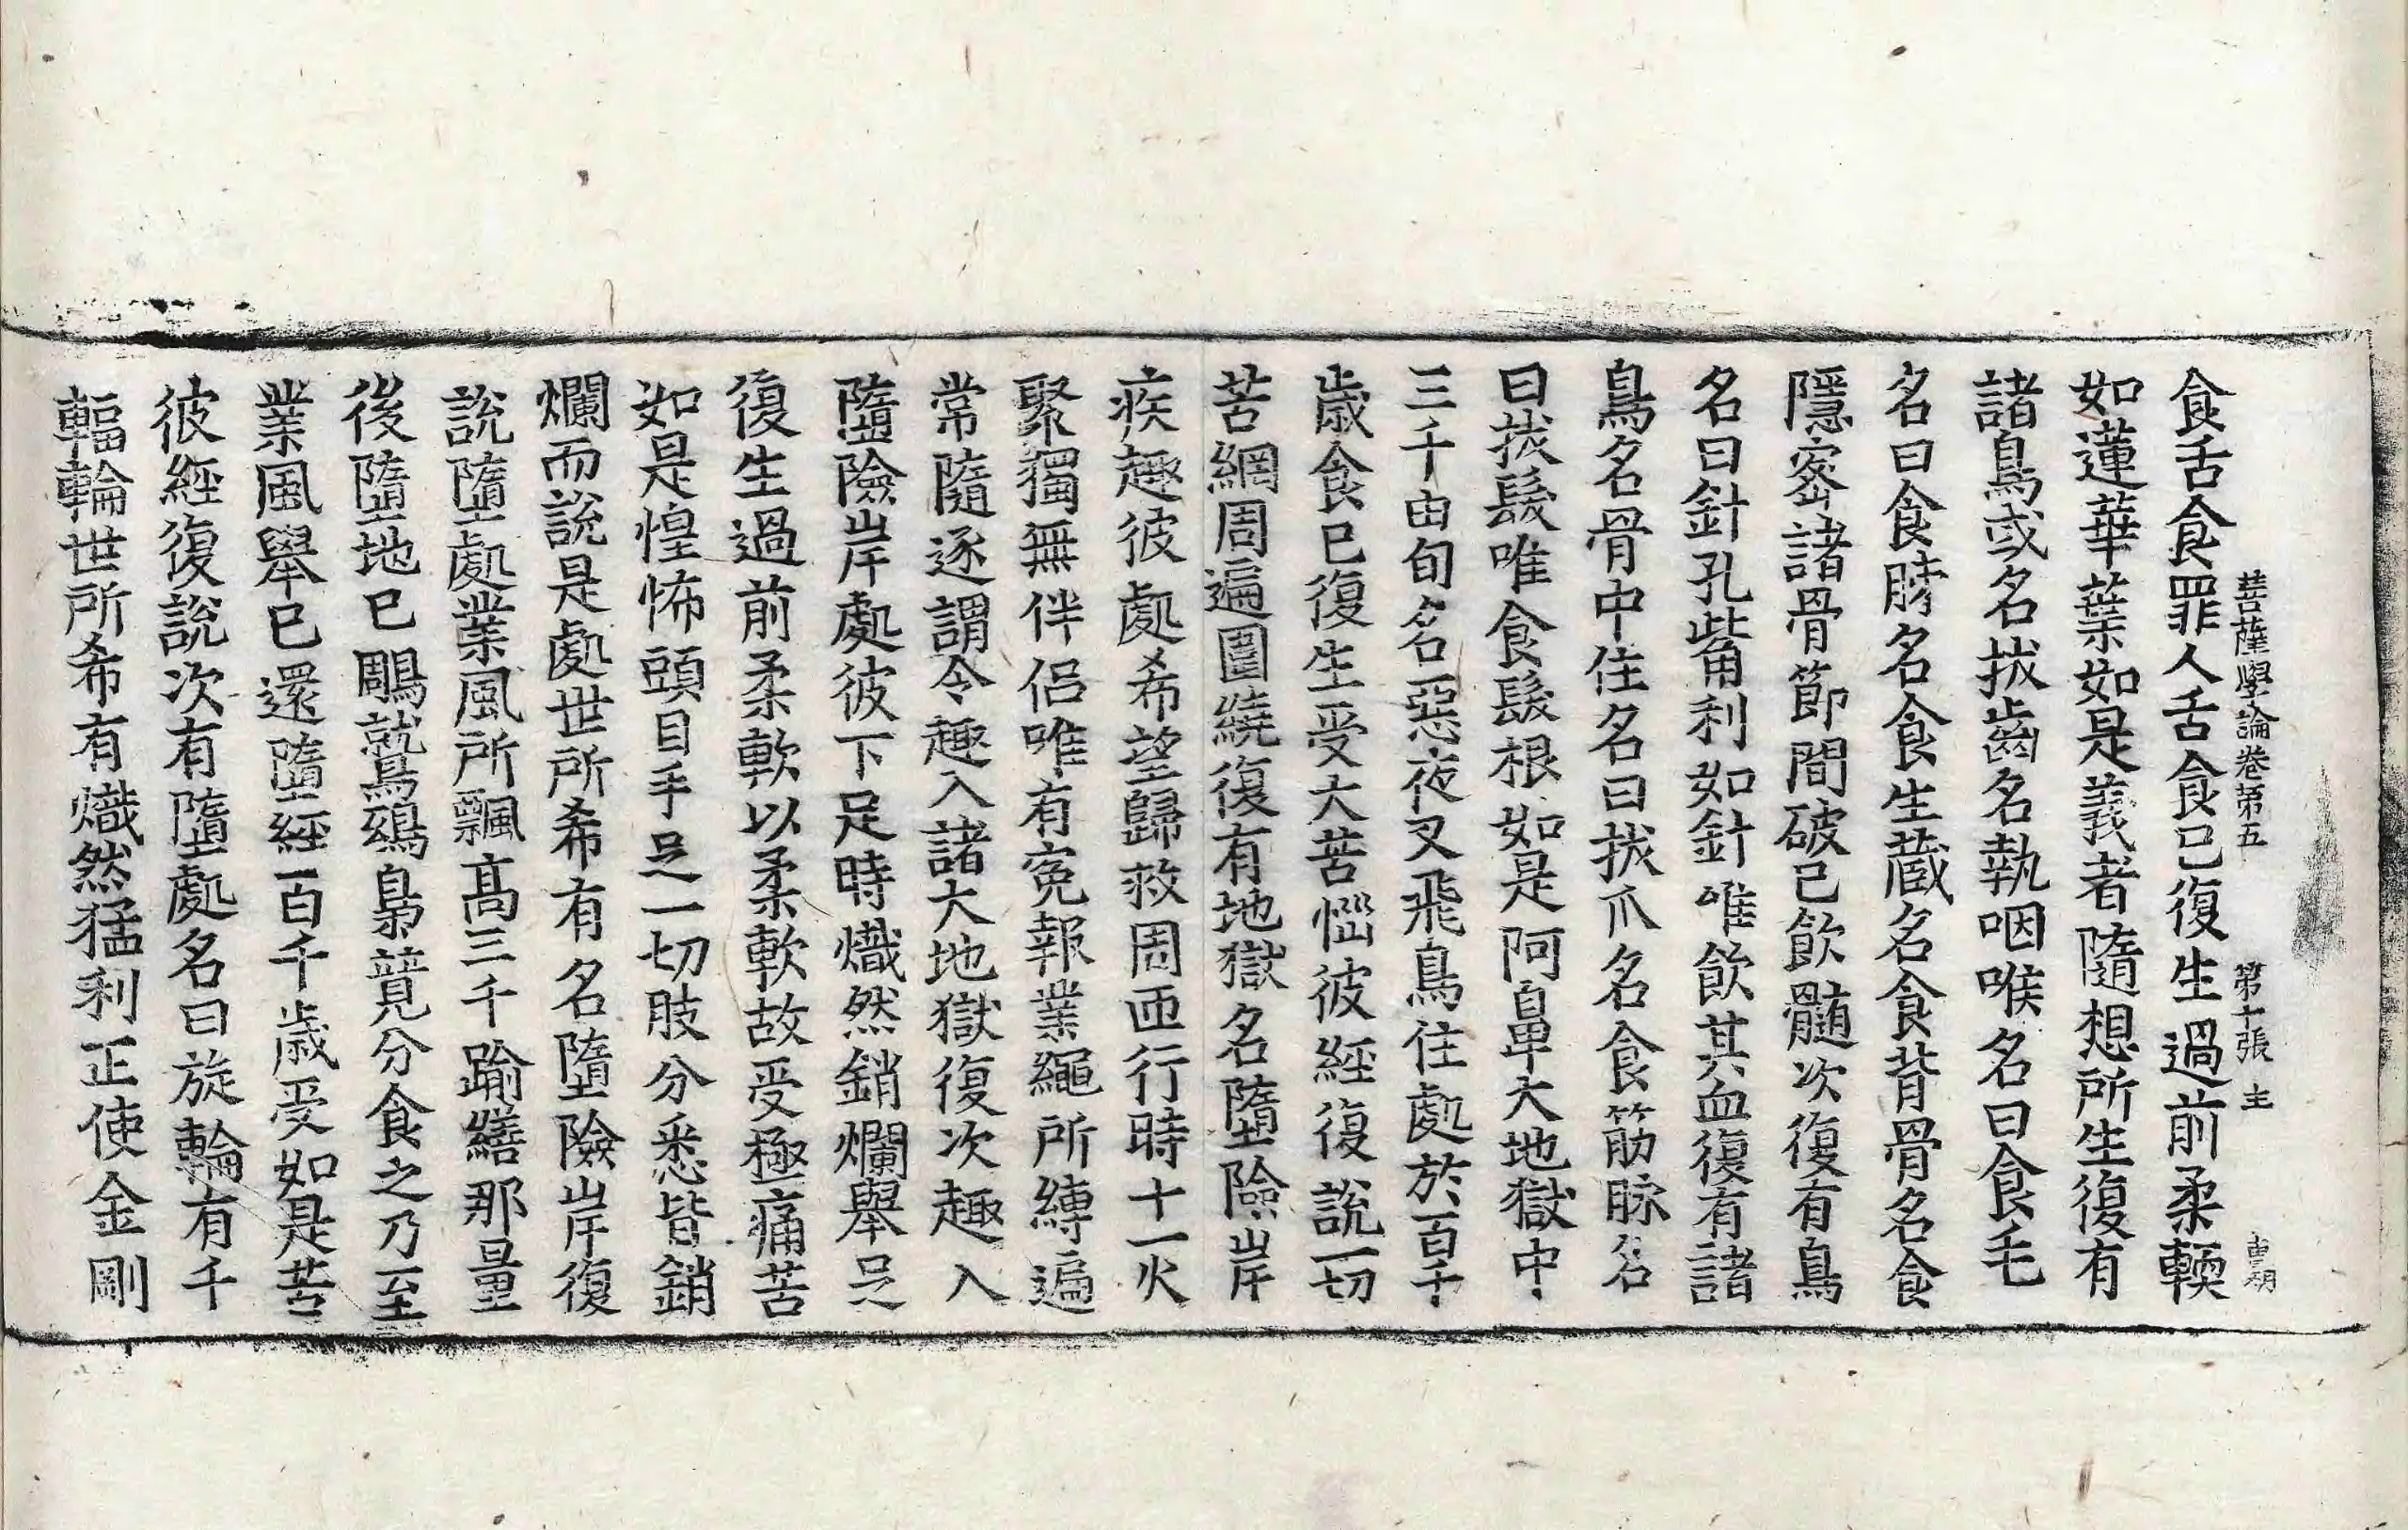 菩薩學論卷第五 第十張 主
食舌食罪人舌食已復生過前柔輭
如蓮華葉如是義者隨想所生復有
諸鳥或名拔齒名執咽喉名曰食毛
名曰食䏶名食生蔵名食背骨名食
隱密諸骨節間破已飲髓次復有鳥
名曰針孔觜利如針唯飲其血復有諸
鳥名骨中住名曰拔爪名食筋脉名
曰拔髮唯食髮根如是阿鼻大地獄中
三千由旬名惡夜叉飛鳥住處於百千
歲食已復生受大苦惱彼經復說一切
苦網周遍圍繞復有地獄名墮險岸
疾趣彼處希望歸救周匝行時十一火
聚獨無伴侶唯有寃報業繩所縛遍
常隨逐謂令趣入諸大地獄復次趣入
墮險岸處彼下足時熾然銷爛舉足
復生過前柔軟以柔軟故受極痛苦
如是惶怖頭目手足一切肢分悉皆銷
爛而說是處世所希有名墮險岸復
說墮處業風所飄高三千踰繕那量
後墮地已鵰鷲鵄梟競分食之乃至
業風舉已還墮經百千歲受如是苦
彼經復說次有墮處名曰旋輪有千
輻輪世所希有熾然猛利正使金剛